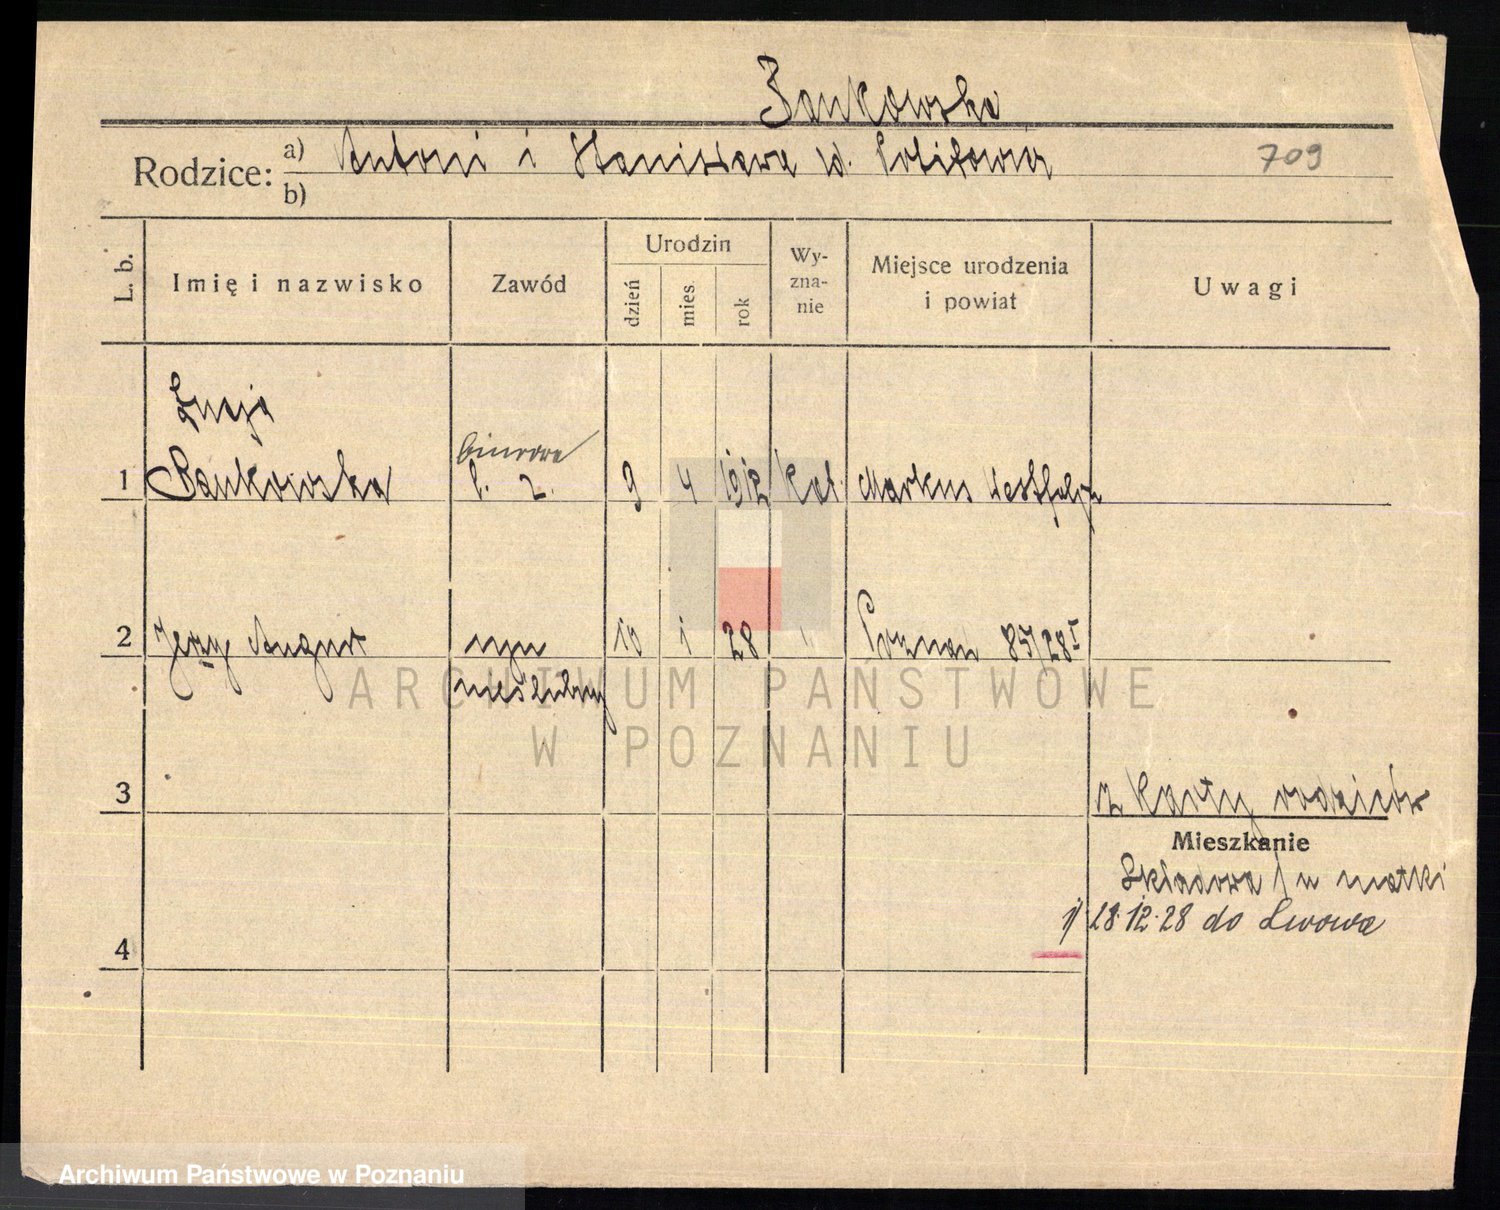 Bankowska
Rodzice: a) Antoni i Stanisława
b)
709
L. b.
Imię i nazwisko
Zawód
Urodzin
dzień
mies
rok
Wy-
zna-
nie
Miejsce urodzenia
i powiat
Uwagi
Łucja
1 Bankowska
biurowa
b. z.
9 4 1912 kat. Markus Westfalja
2 Jerzy August syn 10 1 28 " Poznań 85/28 I
nieślubny
ARCHIWUM PAŃSTWOWE
W POZNANIU
3
z karty rodziców
Mieszkanie
Składowa 1 u matki
1) 28.12.28 do Lwowa
4
Archiwum Państwowe w Poznaniu